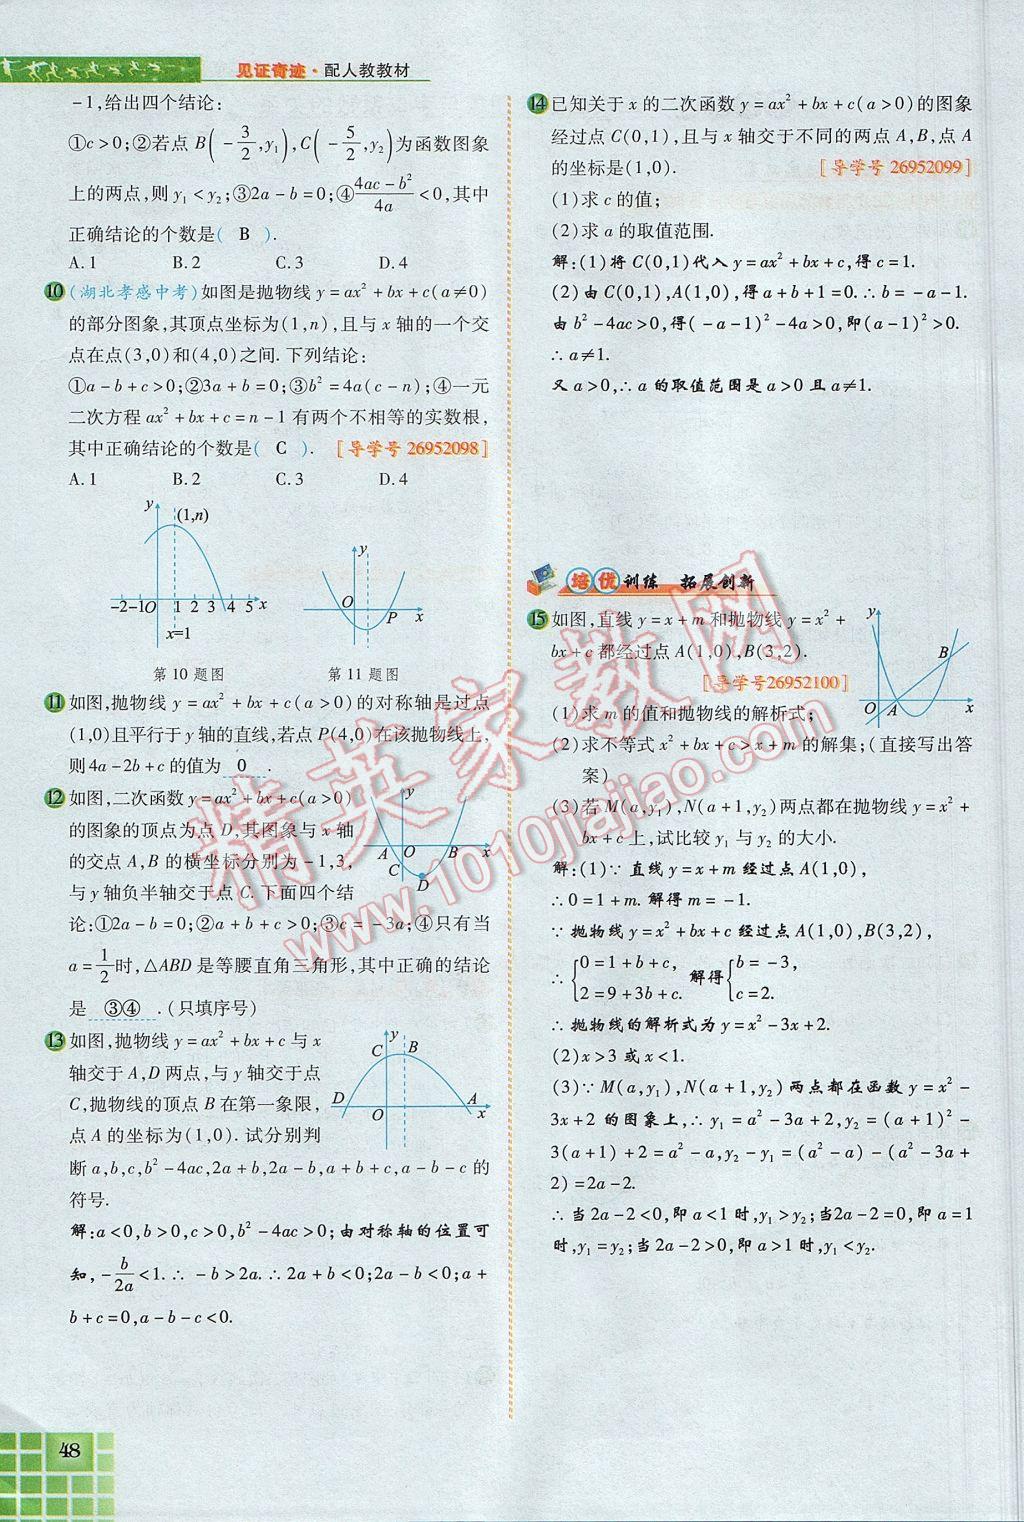 见证奇迹·配人教教材
-1,给出四个结论:
①c>0;②若点B(-3/2,y₁),C(-5/2,y₂)为函数图象
上的两点,则y₁<y₂;③2a-b=0;④(4ac-b²)/4a<0,其中
正确结论的个数是( B ).
A.1 B.2 C.3 D.4
10 (湖北孝感中考)如图是抛物线y=ax²+bx+c(a≠0)
的部分图象,其顶点坐标为(1,n),且与x轴的一个交
点在点(3,0)和(4,0)之间.下列结论:
①a-b+c>0;②3a+b=0;③b²=4a(c-n);④一元
二次方程ax²+bx+c=n-1有两个不相等的实数根,
其中正确结论的个数是( C ). [导学号 26952098]
A.1 B.2 C.3 D.4
y (1,n) -2 -1 O 1 2 3 4 5 x x=1
y O P x
第10题图 第11题图
11 如图,抛物线y=ax²+bx+c(a>0)的对称轴是过点
(1,0)且平行于y轴的直线,若点P(4,0)在该抛物线上,
则4a-2b+c的值为 0 .
12 如图,二次函数y=ax²+bx+c(a>0)
的图象的顶点为点D,其图象与x轴
的交点A,B的横坐标分别为-1,3,
与y轴负半轴交于点C.下面四个结
论:①2a-b=0;②a+b+c>0;③c=-3a;④只有当
a=1/2时,△ABD是等腰直角三角形,其中正确的结论
是 ③④ .(只填序号)
A O B x C D
13 如图,抛物线y=ax²+bx+c与x
轴交于A,D两点,与y轴交于点
C,抛物线的顶点B在第一象限,
点A的坐标为(1,0).试分别判
断a,b,c,b²-4ac,2a+b,2a-b,a+b+c,a-b-c的
符号.
y C B D O A x
解:a<0,b>0,c>0,b²-4ac>0;由对称轴的位置可
知,-b/2a<1.∴-b>2a.∴2a+b<0;2a-b<0;a+
b+c=0,a-b-c<0.
48
14 已知关于x的二次函数y=ax²+bx+c(a>0)的图象
经过点C(0,1),且与x轴交于不同的两点A,B,点A
的坐标是(1,0). [导学号 26952099]
(1)求c的值;
(2)求a的取值范围.
解:(1)将C(0,1)代入y=ax²+bx+c,得c=1.
(2)由C(0,1),A(1,0),得a+b+1=0.∴b=-a-1.
由b²-4ac>0,得(-a-1)²-4a>0,即(a-1)²>0.
∴a≠1.
又a>0,∴a的取值范围是a>0且a≠1.
培优训练 拓展创新
15 如图,直线y=x+m和抛物线y=x²+
bx+c都经过点A(1,0),B(3,2).
[导学号26952100]
y B O A x
(1)求m的值和抛物线的解析式;
(2)求不等式x²+bx+c>x+m的解集;(直接写出答
案)
(3)若M(a,y₁),N(a+1,y₂)两点都在抛物线y=x²+
bx+c上,试比较y₁与y₂的大小.
解:(1)∵直线y=x+m经过点A(1,0),
∴0=1+m.解得m=-1.
∵抛物线y=x²+bx+c经过点A(1,0),B(3,2),
∴{0=1+b+c, 2=9+3b+c. 解得{b=-3, c=2.
∴抛物线的解析式为y=x²-3x+2.
(2)x>3或x<1.
(3)∵M(a,y₁),N(a+1,y₂)两点都在函数y=x²-
3x+2的图象上,∴y₁=a²-3a+2,y₂=(a+1)²-
3(a+1)+2=a²-a,y₂-y₁=(a²-a)-(a²-3a+
2)=2a-2.
∴当2a-2<0,即a<1时,y₁>y₂;当2a-2=0,即a=1
时,y₁=y₂;当2a-2>0,即a>1时,y₁<y₂.
精英家教网
www.1010jiajiao.com